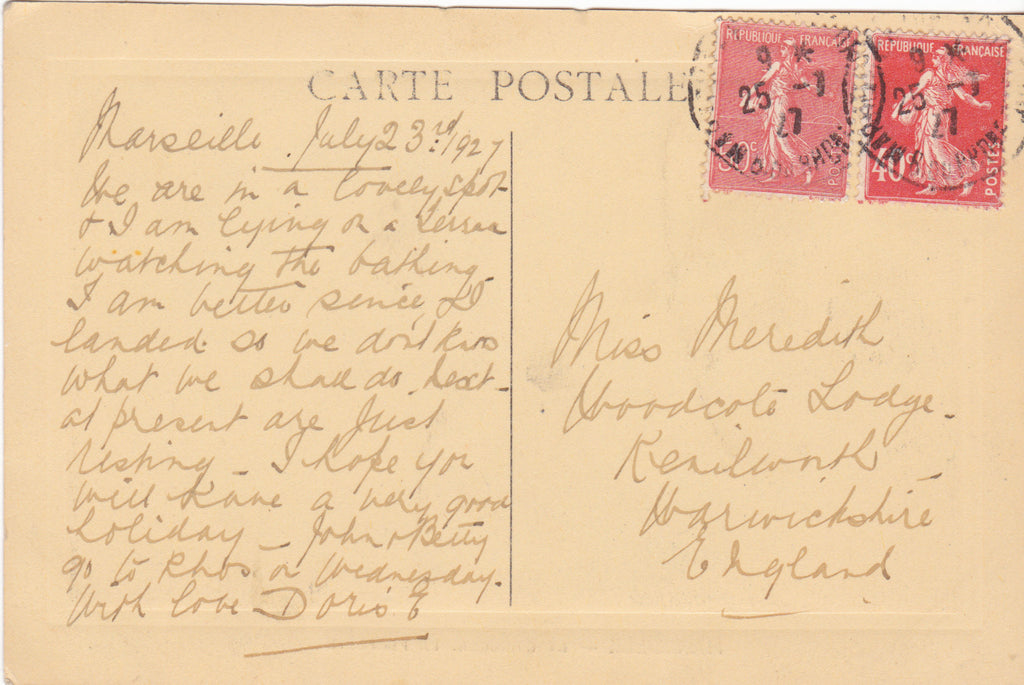 CARTE POSTALE
Marseille July 23rd/1927
We are in a lovely spot
& I am lying on a terrace
watching the bathing
I am better since I
landed so we don't know
what we shall do next -
at present are Just
resting - I hope you
will have a very good
holiday - John & Betty
go to Rhos on Wednesday.
With love Doris. E
REPUBLIQUE FRANÇAISE
POSTES
REPUBLIQUE FRANÇAISE
40c
POSTES
9
25 -7
27
9
25 -7
27
Miss Meredith
Woodcote Lodge -
Kenilworth
Warwickshire
England